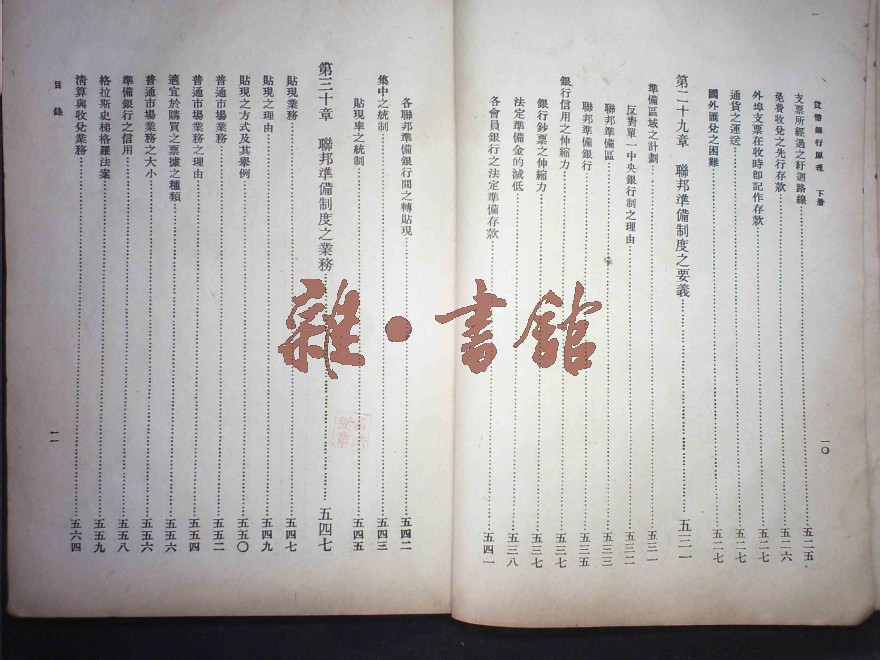 貨幣銀行原理 下册
支票所經過之紆迴路線 五二五
免費收兌之先行存款 五二六
外埠支票在收時即記作存款 五二七
通貨之運送 五二七
國外匯兌之困難 五二七
第二十九章 聯邦準備制度之要義 五三一
準備區域之計劃 五三一
反對單一中央銀行制之理由 五三二
聯邦準備區 五三三
聯邦準備銀行 五三五
銀行信用之伸縮力 五三七
銀行鈔票之伸縮力 五三七
法定準備金的減低 五三八
各會員銀行之法定準備存款 五四一
一〇
各聯邦準備銀行間之轉貼現 五四二
集中之統制 五四三
貼現率之統制 五四五
第三十章 聯邦準備制度之業務 五四七
貼現業務 五四七
貼現之理由 五四九
貼現之方式及其舉例 五五〇
普通市場業務 五五二
普通市場業務之理由 五五四
適宜於購買之票據之種類 五五六
普通市場業務之大小 五五六
準備銀行之信用 五五八
格拉斯史梯格羅法案 五五九
清算與收兌業務 五六四
目錄
一一
雜·書館